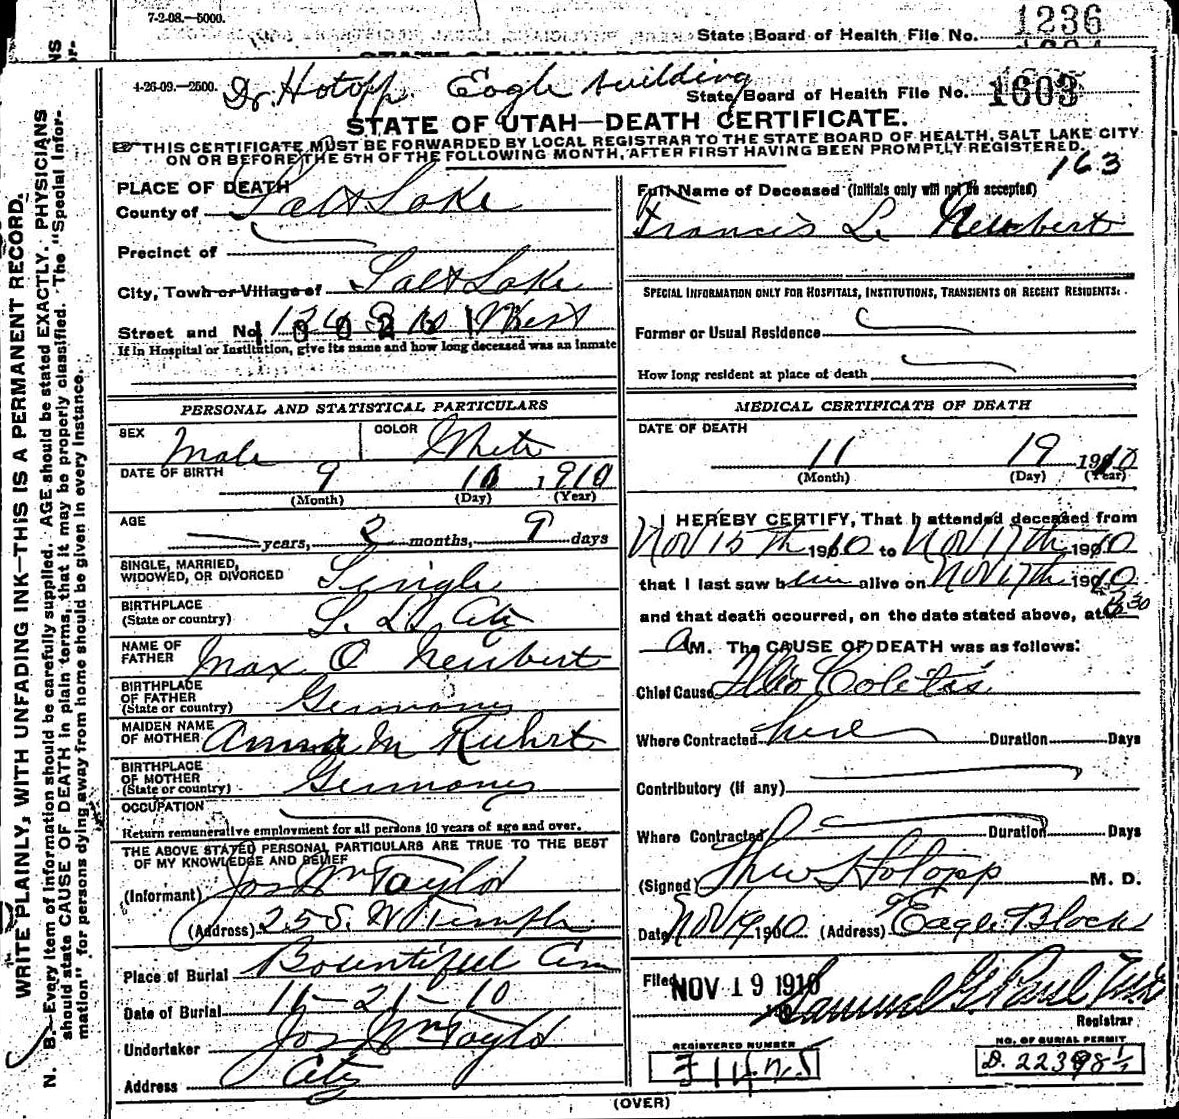 7-2-08.—5000.
State Board of Health File No. 1236
4-26-09.—2500. Dr. Hotopp. Eagle building
State Board of Health File No. 1603
STATE OF UTAH—DEATH CERTIFICATE.
THIS CERTIFICATE MUST BE FORWARDED BY LOCAL REGISTRAR TO THE STATE BOARD OF HEALTH, SALT LAKE CITY
ON OR BEFORE THE 5TH OF THE FOLLOWING MONTH, AFTER FIRST HAVING BEEN PROMPTLY REGISTERED.
163
PLACE OF DEATH
County of Salt Lake
Precinct of
City, Town or Village of Salt Lake
Street and No. West
If in Hospital or Institution, give its name and how long deceased was an inmate
PERSONAL AND STATISTICAL PARTICULARS
SEX Male
COLOR White
DATE OF BIRTH 9 10 1910
(Month) (Day) (Year)
AGE
years, 2 months, 9 days
SINGLE, MARRIED, WIDOWED, OR DIVORCED Single
BIRTHPLACE (State or country) S. L. City
NAME OF FATHER Max O Neubert
BIRTHPLACE OF FATHER (State or country) Germany
MAIDEN NAME OF MOTHER Anna M Kuhrt
BIRTHPLACE OF MOTHER (State or country) Germany
OCCUPATION
Return remunerative employment for all persons 10 years of age and over.
THE ABOVE STATED PERSONAL PARTICULARS ARE TRUE TO THE BEST
OF MY KNOWLEDGE AND BELIEF
(Informant) Jos Wm Taylor
(Address) 25 S. W Temple
Place of Burial Bountiful Cem
Date of Burial 11-21-10
Undertaker Jos Wm Taylor
Address City
Full Name of Deceased (Initials only will not be accepted)
Francis L. Neubert
SPECIAL INFORMATION ONLY FOR HOSPITALS, INSTITUTIONS, TRANSIENTS OR RECENT RESIDENTS:
Former or Usual Residence
How long resident at place of death
MEDICAL CERTIFICATE OF DEATH
DATE OF DEATH
11 19 1910
(Month) (Day) (Year)
I HEREBY CERTIFY, That I attended deceased from
Nov 15th 1910 to Nov 17th 1910
that I last saw him alive on Nov 17th 1910
and that death occurred, on the date stated above, at 3 30
A M. The CAUSE OF DEATH was as follows:
Chief Cause Ileo Colitis
Where Contracted here Duration Days
Contributory (if any)
Where Contracted Duration Days
(Signed) Theo Hotopp M. D.
Date Nov 19 1910 (Address) Eagle Block
Filed NOV 19 1910 Samuel G. Paul
Registrar
REGISTERED NUMBER
NO. OF BURIAL PERMIT
(OVER)
WRITE PLAINLY, WITH UNFADING INK—THIS IS A PERMANENT RECORD.
N. B.—Every item of information should be carefully supplied. AGE should be stated EXACTLY. PHYSICIANS
should state CAUSE OF DEATH in plain terms, that it may be properly classified. The "Special Infor-
mation" for persons dying away from home should be given in every instance.